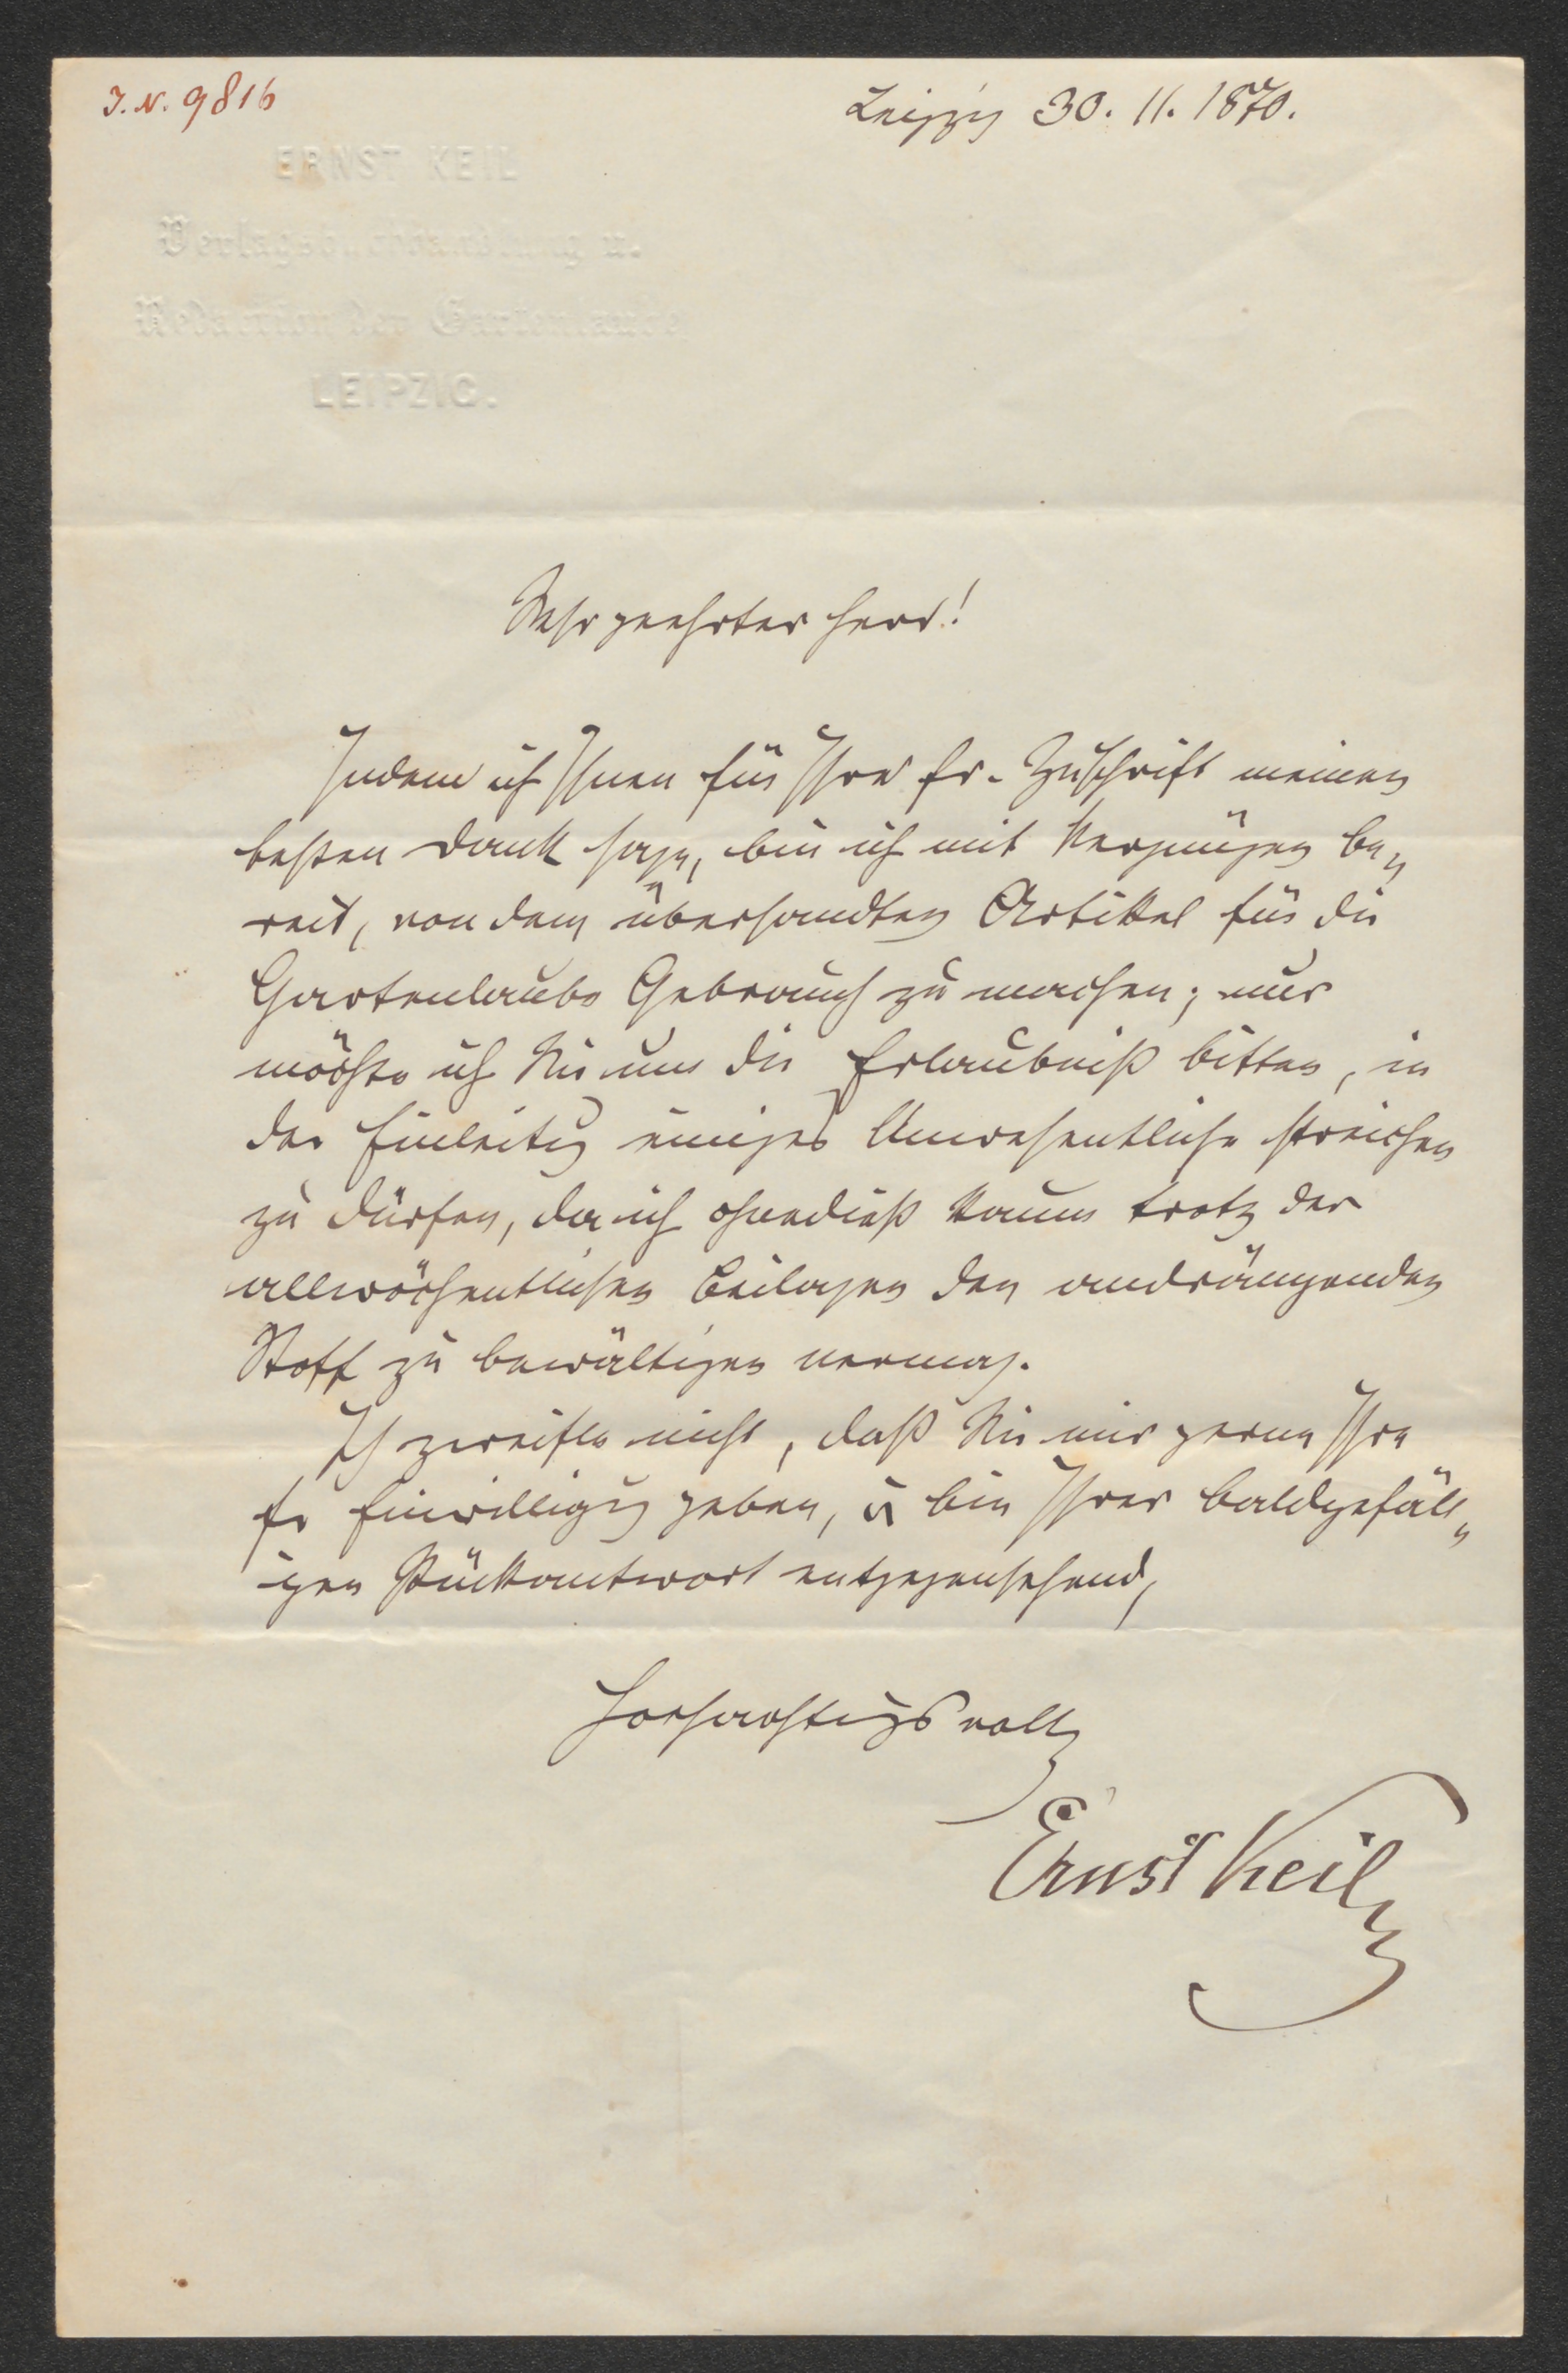 J. N. 9816
Leipzig 30. 11. 1870.
ERNST KEIL
Verlagsbuchhandlung u.
Redaction der Gartenlaube
LEIPZIG.
Sehr geehrter Herr!
Indem ich Ihnen für Ihre fr. Zuschrift meinen
beßten Dank sage, bin ich mit Vergnügen be„
reit, von dem übersandten Artikel für die
Gartenlaube Gebrauch zu machen; nur
möchte ich Sie um die Erlaubniß bitten, in
der Einleitg einiges Unwesentliche streichen
zu dürfen, da ich ohnedieß kaum trotz der
allwöchentlichen Beilagen den andrängenden
Stoff zu bewältigen vermag.
Ich zweifle nicht, daß Sie mir gerne Ihre
fr Einwilligg geben, u bin Ihrer baldgefäll„
igen Rückantwort entgegensehend,
Hochachtgsvoll
Ernst Keil